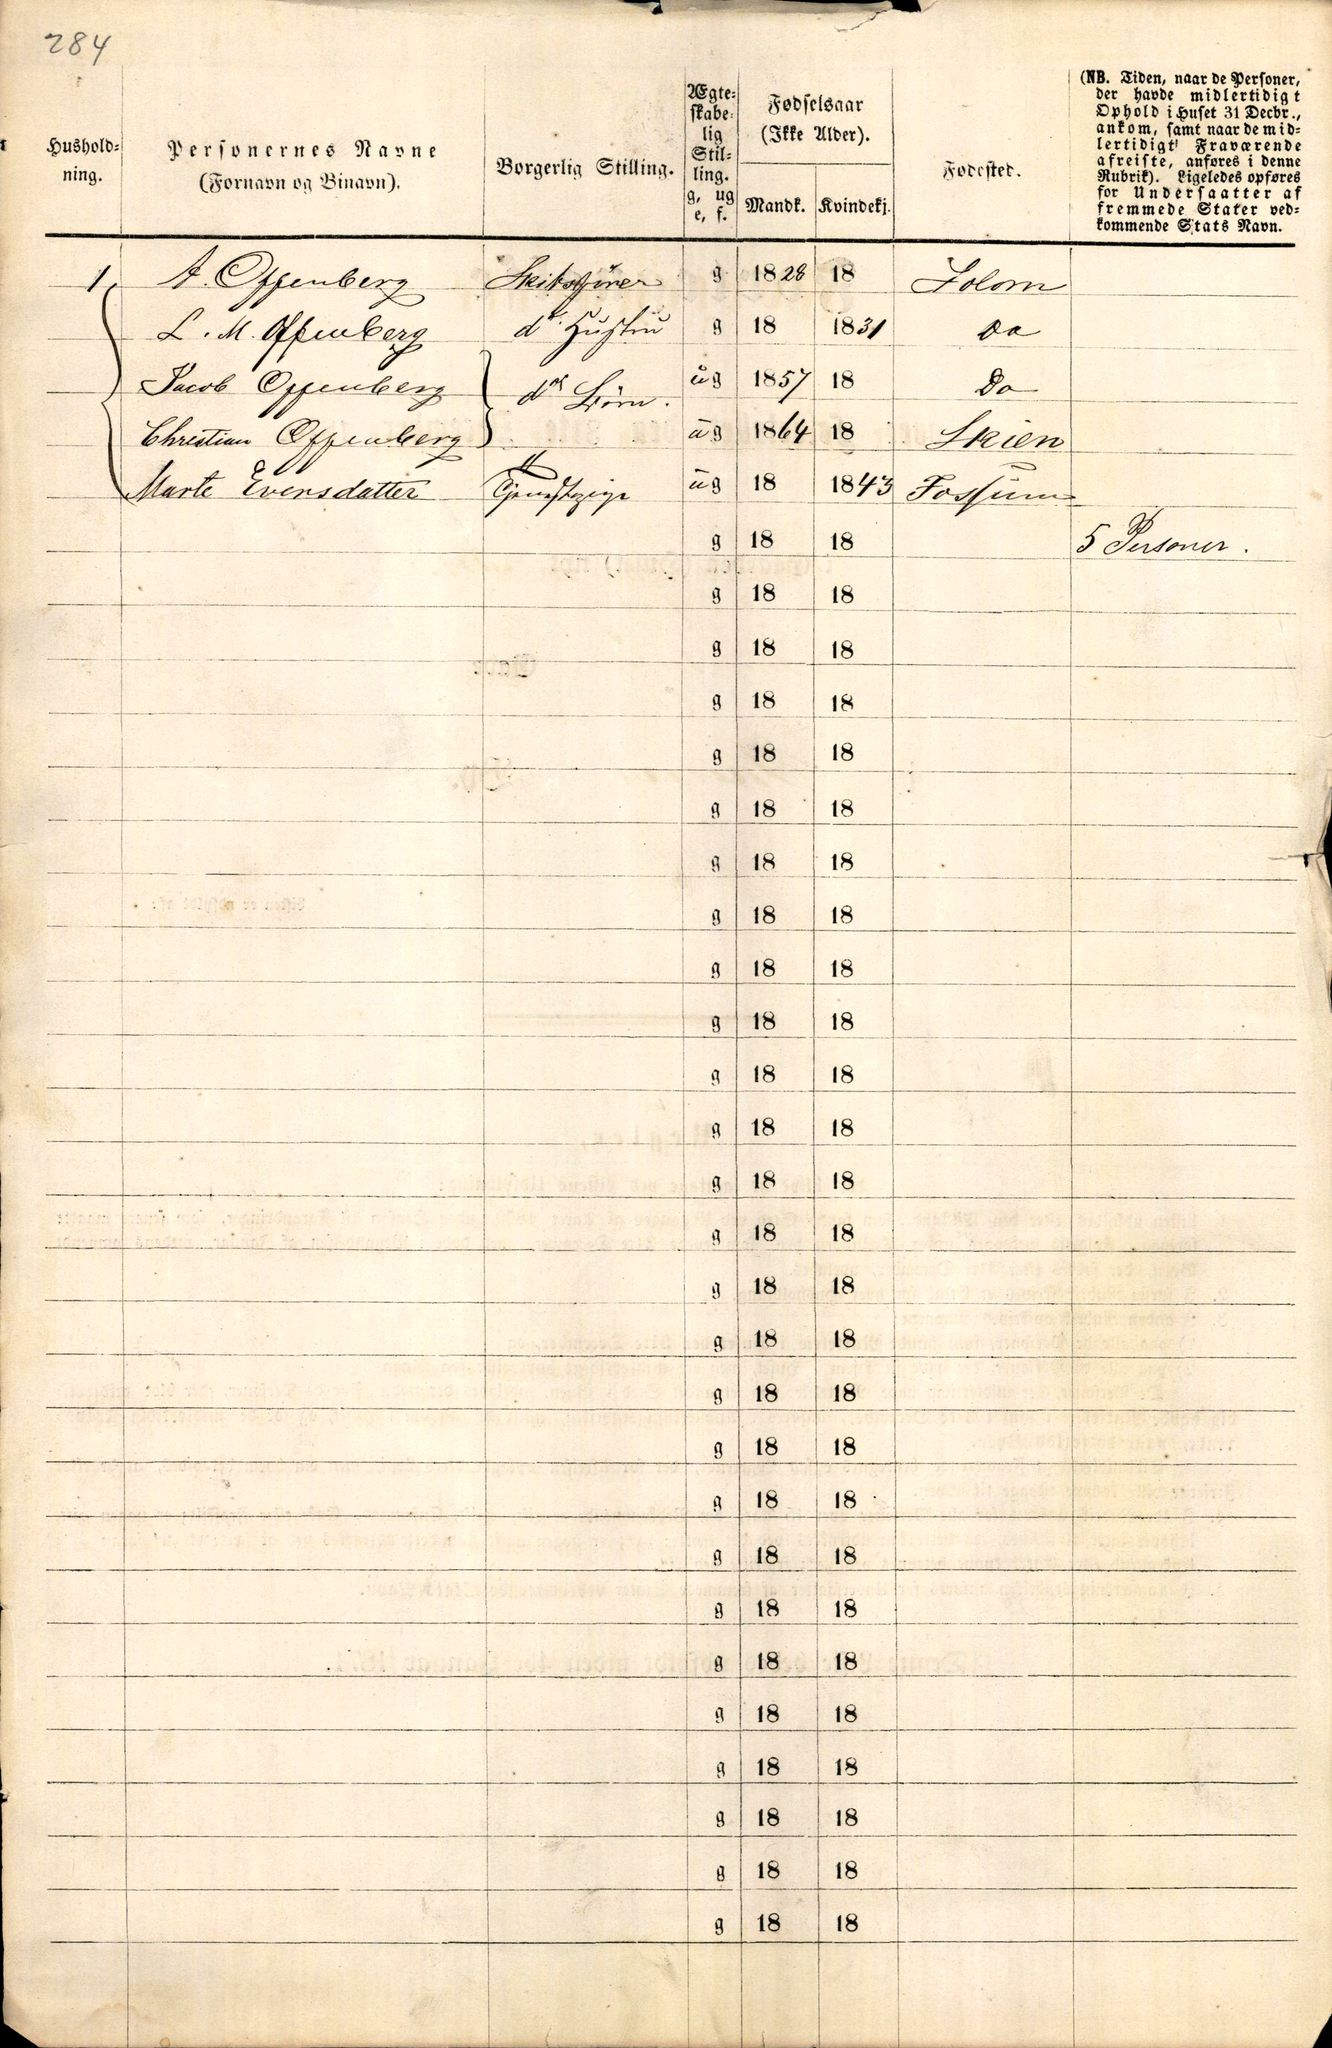 284
Hushold-
ning.
Personernes Navne
(Fornavn og Binavn).
Borgerlig Stilling.
Ægte-
skabe-
lig
Stil-
ling.
g, ug
e, f.
Fødselsaar
(Ikke Alder).
Mandk. Kvindekj.
Fødested.
(NB. Tiden, naar de Personer,
der havde midlertidigt
Ophold i Huset 31 Decbr.,
ankom, samt naar de mid-
lertidigt Fraværende
afreiste, anføres i denne
Rubrik). Ligeledes opføres
for Undersaatter af
fremmede Stater ved-
kommende Stats Navn.
1 A. Offenberg g 1828 18 Solom
L. M. Offenberg ds Hustru g 18 1831 Do
Jacob Offenberg ds Børn. ug 1857 18 Do
Christian Offenberg ug 1864 18 Skien
Marte Evensdatter Tjenestepige ug 18 1843 Fossum
g 18 18 5 Personer.
g 18 18
g 18 18
g 18 18
g 18 18
g 18 18
g 18 18
g 18 18
g 18 18
g 18 18
g 18 18
g 18 18
g 18 18
g 18 18
g 18 18
g 18 18
g 18 18
g 18 18
g 18 18
g 18 18
g 18 18
g 18 18
g 18 18
g 18 18
g 18 18
g 18 18
g 18 18